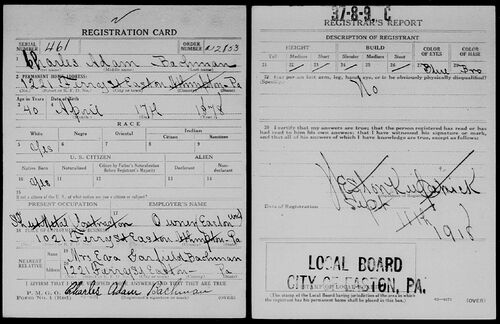 REGISTRATION CARD
SERIAL NUMBER 461
ORDER NUMBER
1 Charles Adam Bachman
(First name) (Middle name) (Last name)
2 PERMANENT HOME ADDRESS:
1221 Ferry St Easton Pa
Age in Years
Date of Birth
40 April 17th 1878
RACE
White
Negro
Oriental
Indian
Citizen
Noncitizen
5
6
7
8
9
Yes
U. S. CITIZEN
ALIEN
Native Born
Naturalized
Citizen by Father's Naturalization Before Registrant's Majority
Declarant
Non-declarant
10
11
12
13
14
Yes
15
If not a citizen of the U. S., of what nation are you a citizen or subject?
PRESENT OCCUPATION
EMPLOYER'S NAME
Owner
1021 Ferry St Easton Pa
NEAREST RELATIVE
Name
Address
Mrs Eva Garfield Bachman
1221 Ferry St Easton Pa
I AFFIRM THAT I HAVE VERIFIED ABOVE ANSWERS AND THAT THEY ARE TRUE
P. M. G. O.
Form No. 1 (Red)
Charles Adam Bachman
(Registrant's signature or mark)
(OVER)
37-8-9 C
REGISTRAR'S REPORT
DESCRIPTION OF REGISTRANT
HEIGHT
BUILD
COLOR OF EYES
COLOR OF HAIR
Tall
Medium
Short
Slender
Medium
Stout
21
22
23
24
25
26
27
28
Blue
Bro
29 Has person lost arm, leg, hand, eye, or is he obviously physically disqualified?
No
30 I certify that my answers are true; that the person registered has read or has had read to him his own answers; that I have witnessed his signature or mark, and that all of his answers of which I have knowledge are true, except as follows:
Date of Registration
Sept
1918
LOCAL BOARD
CITY OF EASTON, PA.
(The stamp of the Local Board having jurisdiction of the area in which the registrant has his permanent home shall be placed in this box.)
(OVER)